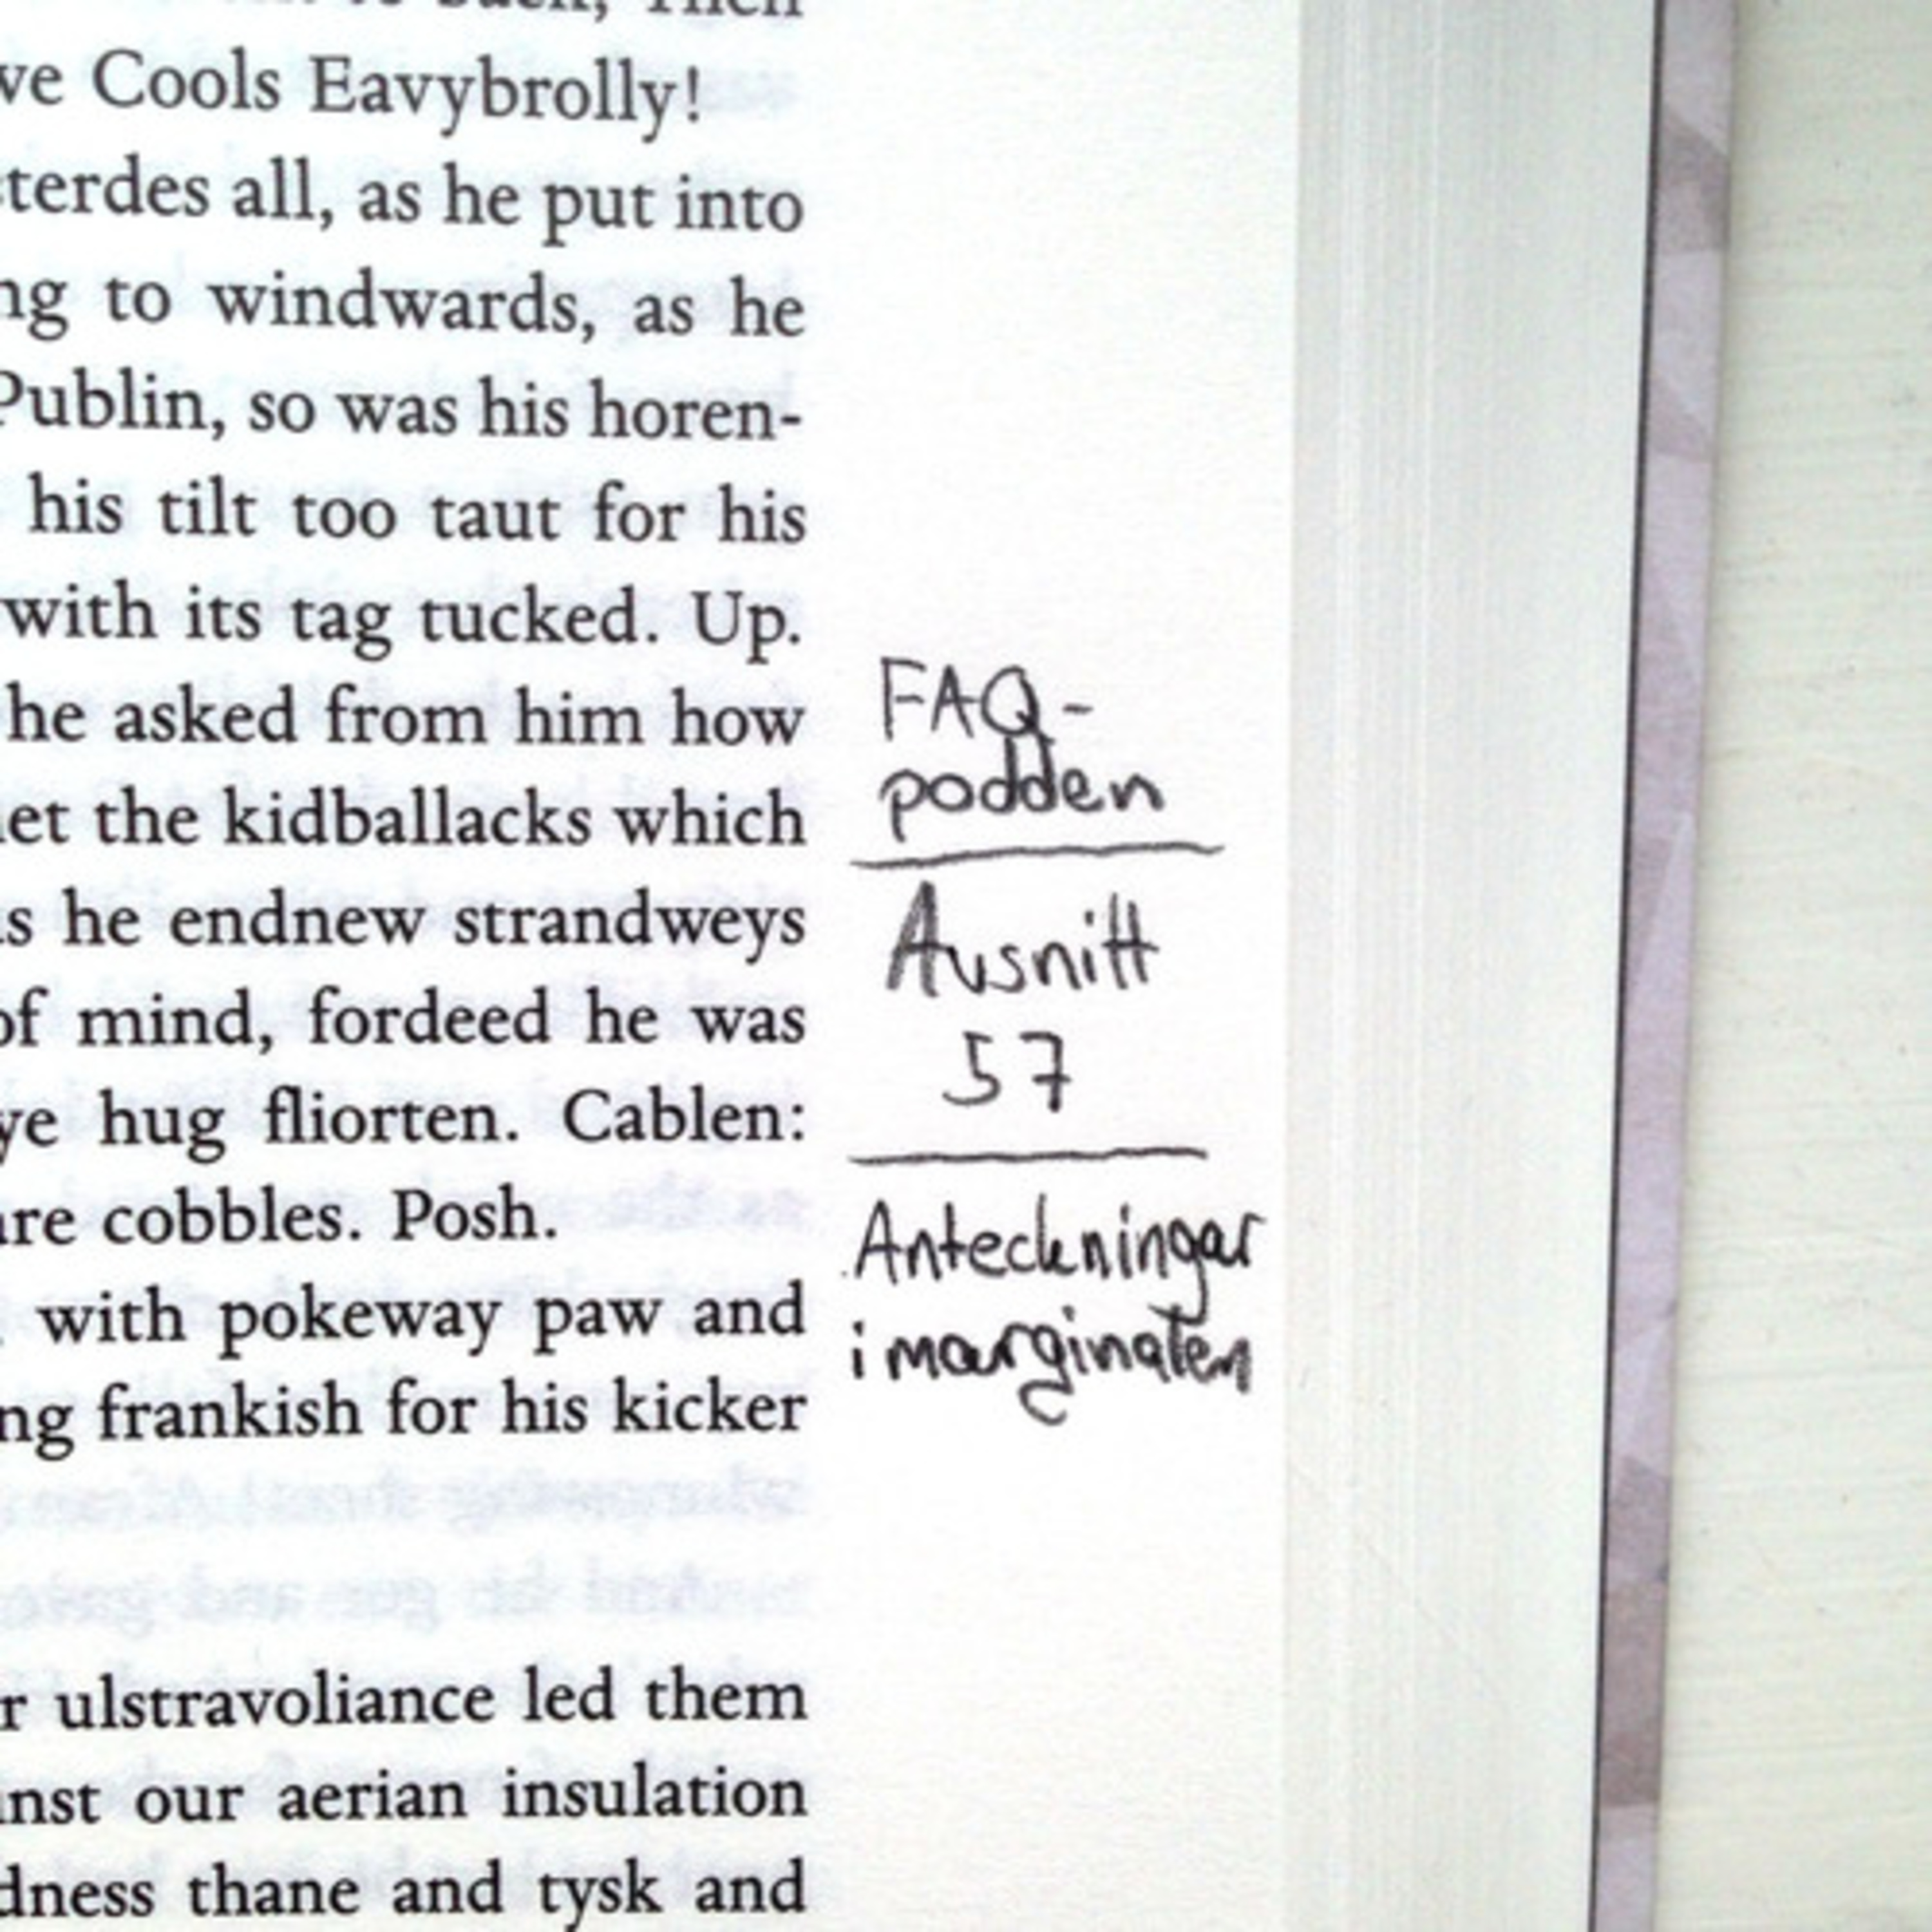 Cools Eavybrolly!
all, as he put into
to windwards, as he
Publin, so was his horen-
his tilt too taut for his
with its tag tucked. Up.
he asked from him how
the kidballacks which
he endnew strandweys
of mind, fordeed he was
hug fliorten. Cablen:
cobbles. Posh.
with pokeway paw and
frankish for his kicker
ulstravoliance led them
our aerian insulation
thane and tysk and
FAQ-
podden
Avsnitt
57
Anteckningar
i marginalen